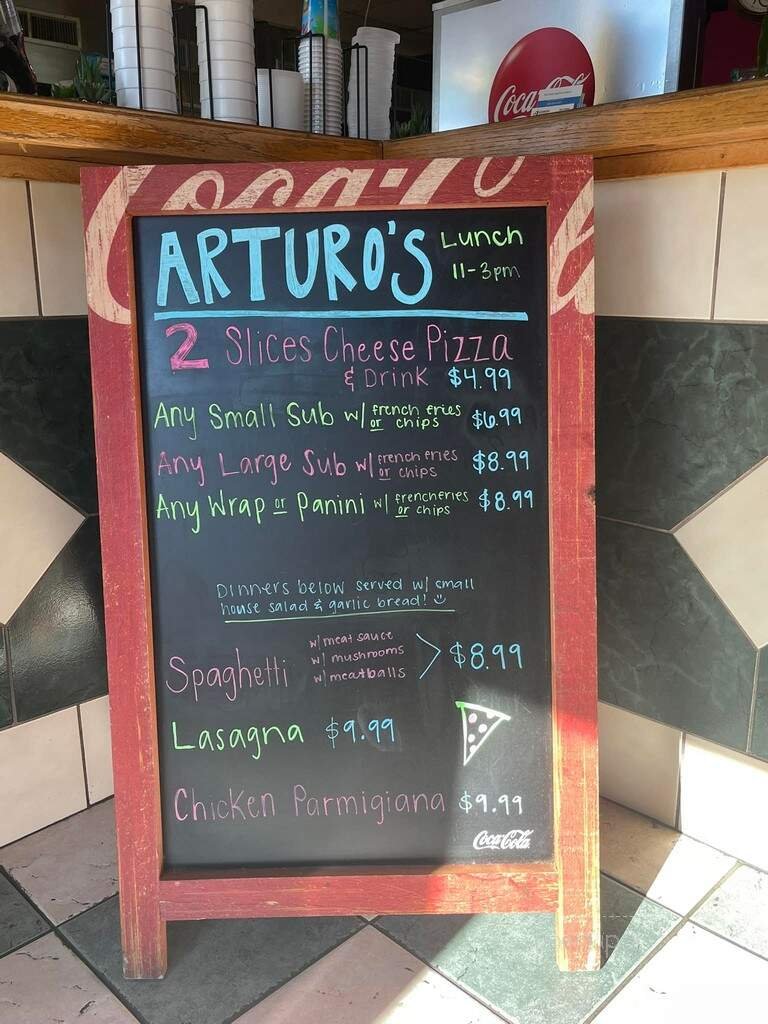 Coca-Cola
Coca-Co
ARTURO'S
Lunch
11-3pm
2 Slices Cheese Pizza
& Drink $4.99
Any Small Sub w/ french fries or chips $6.99
Any Large Sub w/ french fries or chips $8.99
Any Wrap or Panini w/ frenchfries or chips $8.99
Dinners below served w/ small
house salad & garlic bread!
w/ meat sauce
w/ mushrooms
w/ meatballs
Spaghetti > $8.99
Lasagna $9.99
Chicken Parmigiana $9.99
Coca-Cola